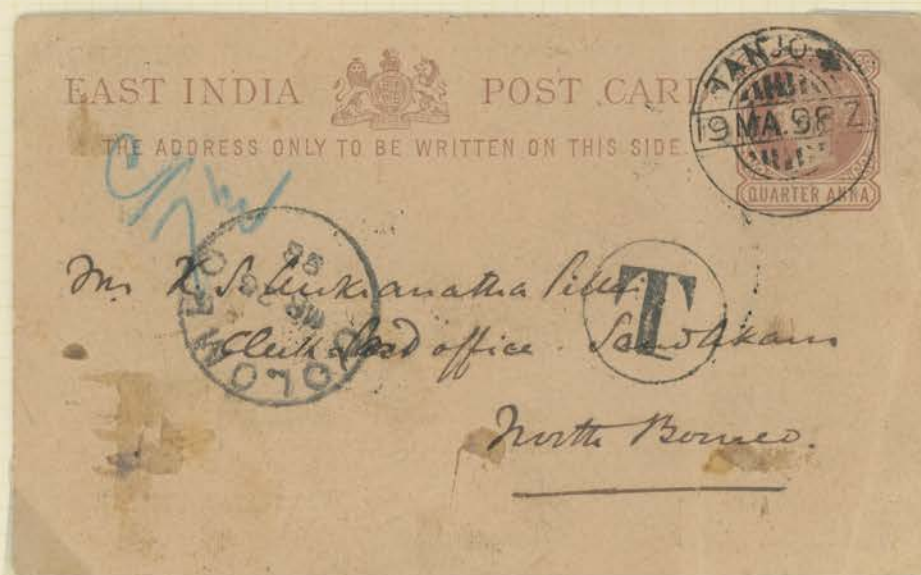 EAST INDIA POST CAR
THE ADDRESS ONLY TO BE WRITTEN ON THIS SIDE.
TANJO
19 MA. 98 Z
QUARTER ANNA
COLOMBO
98
T
Mr K. S. Pillai
Clerk Land office. Sandakan
North Borneo.